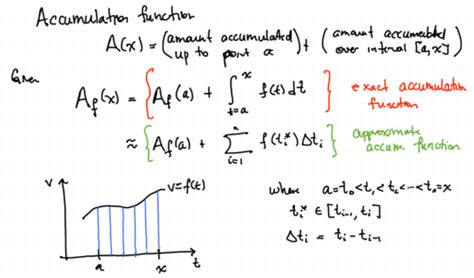 Accumulation function
A(x) = (amount accumulated up to point a) + (amount accumulated over interval [a,x])
Given
A_f(x) = {A_f(a) + ∫_{t=a}^{x} f(t)dt} exact accumulation function
≈ {A_f(a) + ∑_{i=1}^{n} f(t_i*)Δt_i} approximate accum. function
v v=f(t) a x t
where a=t_0<t_1<t_2<...<t_n=x
t_i* ∈ [t_{i-1}, t_i]
Δt_i = t_i - t_{i-1}